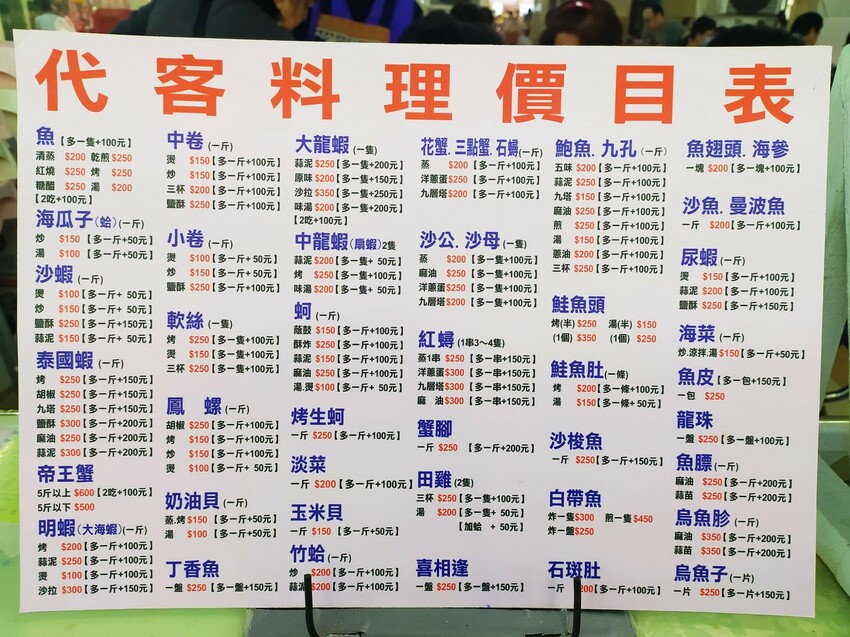 代客料理價目表
魚【多一隻+100元】
清蒸 $200 乾煎 $250
紅燒 $250 烤 $250
糖醋 $250 湯 $200
【2吃+100元】
海瓜子(蛤)(一斤)
炒 $150【多一斤+50元】
湯 $100【多一斤+50元】
沙蝦(一斤)
燙 $100【多一斤+ 50元】
炒 $150【多一斤+ 50元】
鹽酥 $250【多一斤+150元】
蒜泥 $150【多一斤+ 50元】
泰國蝦(一斤)
烤 $250【多一斤+150元】
胡椒 $250【多一斤+150元】
九塔 $250【多一斤+150元】
鹽酥 $300【多一斤+200元】
麻油 $250【多一斤+200元】
蒜泥 $300【多一斤+200元】
帝王蟹
5斤以上 $600【2吃+100元】
5斤以下 $500
明蝦(大海蝦)(一斤)
烤 $200【多一斤+100元】
蒜泥 $250【多一斤+100元】
燙 $100【多一斤+100元】
沙拉 $300【多一斤+150元】
中卷(一斤)
燙 $150【多一斤+100元】
炒 $150【多一斤+100元】
三杯 $200【多一斤+100元】
鹽酥 $250【多一斤+100元】
小卷(一斤)
燙 $100【多一斤+ 50元】
炒 $150【多一斤+ 50元】
鹽酥 $250【多一斤+100元】
軟絲(一隻)
烤 $250【多一隻+100元】
燙 $150【多一隻+100元】
三杯 $250【多一隻+100元】
鳳螺(一斤)
胡椒 $250【多一斤+100元】
烤 $150【多一斤+100元】
炒 $150【多一斤+100元】
燙 $100【多一斤+ 50元】
奶油貝(一斤)
蒸.烤 $150【多一斤+50元】
湯 $100【多一斤+50元】
丁香魚
一盤 $250【多一盤+150元】
大龍蝦(一隻)
蒜泥 $250【多一隻+200元】
原味 $200【多一隻+150元】
沙拉 $350【多一隻+250元】
味湯 $200【多一隻+200元】
【2吃+100元】
中龍蝦(扇蝦)2隻
蒜泥 $200【多一隻+ 50元】
烤 $250【多一隻+100元】
味湯 $200【多一隻+ 50元】
蚵(一斤)
蔭鼓 $150【多一斤+100元】
酥炸 $250【多一斤+100元】
蒜泥 $150【多一斤+100元】
麻油 $250【多一斤+100元】
湯.燙 $100【多一斤+ 50元】
烤生蚵
一斤 $250【多一斤+100元】
淡菜
一斤 $200【多一斤+100元】
玉米貝
一斤 $150【多一斤+50元】
竹蛤(一斤)
炒 $200【多一斤+100元】
蒜泥 $200【多一斤+100元】
花蟹.三點蟹.石蟳(一斤)
蒸 $200【多一斤+100元】
洋蔥蛋 $250【多一斤+100元】
九層塔 $200【多一斤+100元】
沙公.沙母(一隻)
蒸 $200【多一隻+100元】
麻油 $250【多一隻+100元】
洋蔥蛋 $250【多一隻+100元】
九層塔 $200【多一隻+100元】
紅蟳(1串3～4隻)
蒸1串 $250【多一串+150元】
洋蔥蛋 $300【多一串+150元】
九層塔 $300【多一串+150元】
麻油 $300【多一串+150元】
蟹腳
一斤 $250【多一斤+200元】
田雞(2隻)
三杯 $250【多一隻+100元】
湯 $200【多一隻+ 50元】
【加蛤 + 50元】
喜相逢
一盤 $250【多一盤+150元】
鮑魚.九孔(一斤)
五味 $200【多一斤+100元】
蒜泥 $250【多一斤+100元】
九塔 $150【多一斤+100元】
麻油 $250【多一斤+100元】
煎 $250【多一斤+100元】
湯 $150【多一斤+100元】
蔥油 $200【多一斤+100元】
三杯 $250【多一斤+100元】
鮭魚頭
烤(半) $250 湯(半) $150
(1個) $350 (1個) $250
鮭魚肚(一條)
烤 $200【多一條+100元】
湯 $150【多一條+ 50元】
沙梭魚
一斤 $250【多一斤+150元】
白帶魚
炸一隻 $300 煎一隻 $450
炸一盤 $250
石斑肚
一斤 $200【多一斤+100元】
魚翅頭.海參
一塊 $200【多一塊+100元】
沙魚.曼波魚
一斤 $200【多一斤+100元】
尿蝦(一斤)
燙 $150【多一斤+100元】
蒜泥 $200【多一斤+100元】
鹽酥 $250【多一斤+150元】
海菜(一斤)
炒.涼拌.湯 $150【多一斤+50元】
魚皮【多一包+150元】
一包 $250
龍珠
一盤 $250【多一盤+100元】
魚膘(一斤)
麻油 $250【多一斤+200元】
蒜苗 $250【多一斤+200元】
烏魚胗(一斤)
麻油 $350【多一斤+200元】
蒜苗 $350【多一斤+200元】
烏魚子(一片)
一片 $250【多一片+150元】